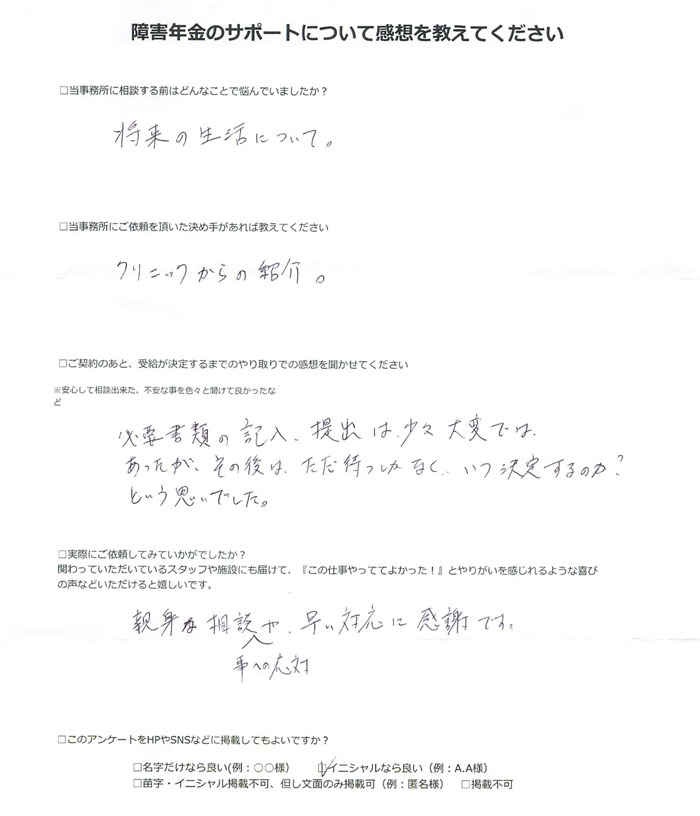 障害年金のサポートについて感想を教えてください
□当事務所に相談する前はどんなことで悩んでいましたか？
将来の生活について。
□当事務所にご依頼を頂いた決め手があれば教えてください
クリニックからの紹介。
□ご契約のあと、受給が決定するまでのやり取りでの感想を聞かせてください
※安心して相談出来た、不安な事を色々と聞けて良かったな
ど
必要書類の記入、提出は、少々大変では、
あったが、その後は、ただ待つしかなく、いつ決定するのか？
という思いでした。
□実際にご依頼してみていかがでしたか？
関わっていただいているスタッフや施設にも届けて、『この仕事やっててよかった！』とやりがいを感じれるような喜び
の声などいただけると嬉しいです。
親身な相談や、早い対応に感謝です。
事への応対
□このアンケートをHPやSNSなどに掲載してもよいですか？
□名字だけなら良い(例：○○様） ☑イニシャルなら良い（例：A.A様）
□苗字・イニシャル掲載不可、但し文面のみ掲載可（例：匿名様） □掲載不可